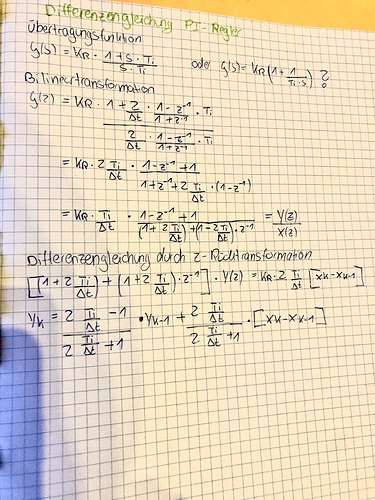 Differenzengleichung PI-Regler
Übertragungsfunktion
G(s) = KR · (1 + s · Ti) / (s · Ti) oder G(s) = KR (1 + 1 / (Ti · s)) ?
Bilineartransformation
G(z) = KR · (1 + 2/Δt · (1 - z⁻¹)/(1 + z⁻¹) · Ti) / (2/Δt · (1 - z⁻¹)/(1 + z⁻¹) · Ti)
= KR · 2 Ti/Δt · (1 - z⁻¹ + 1) / (1 + z⁻¹ + 2 Ti/Δt · (1 - z⁻¹))
= KR · Ti/Δt · (1 - z⁻¹ + 1) / ((1 + 2 Ti/Δt) + (1 - 2 Ti/Δt) · z⁻¹) = Y(z)/X(z)
Differenzengleichung durch z-Rücktransformation
[(1 + 2 Ti/Δt) + (1 + 2 Ti/Δt) · z⁻¹] · Y(z) = KR · 2 Ti/Δt [xk - xk-1]
Yk = (2 Ti/Δt - 1) / (2 Ti/Δt + 1) · Yk-1 + (2 Ti/Δt) / (2 Ti/Δt + 1) · [xk - xk-1]